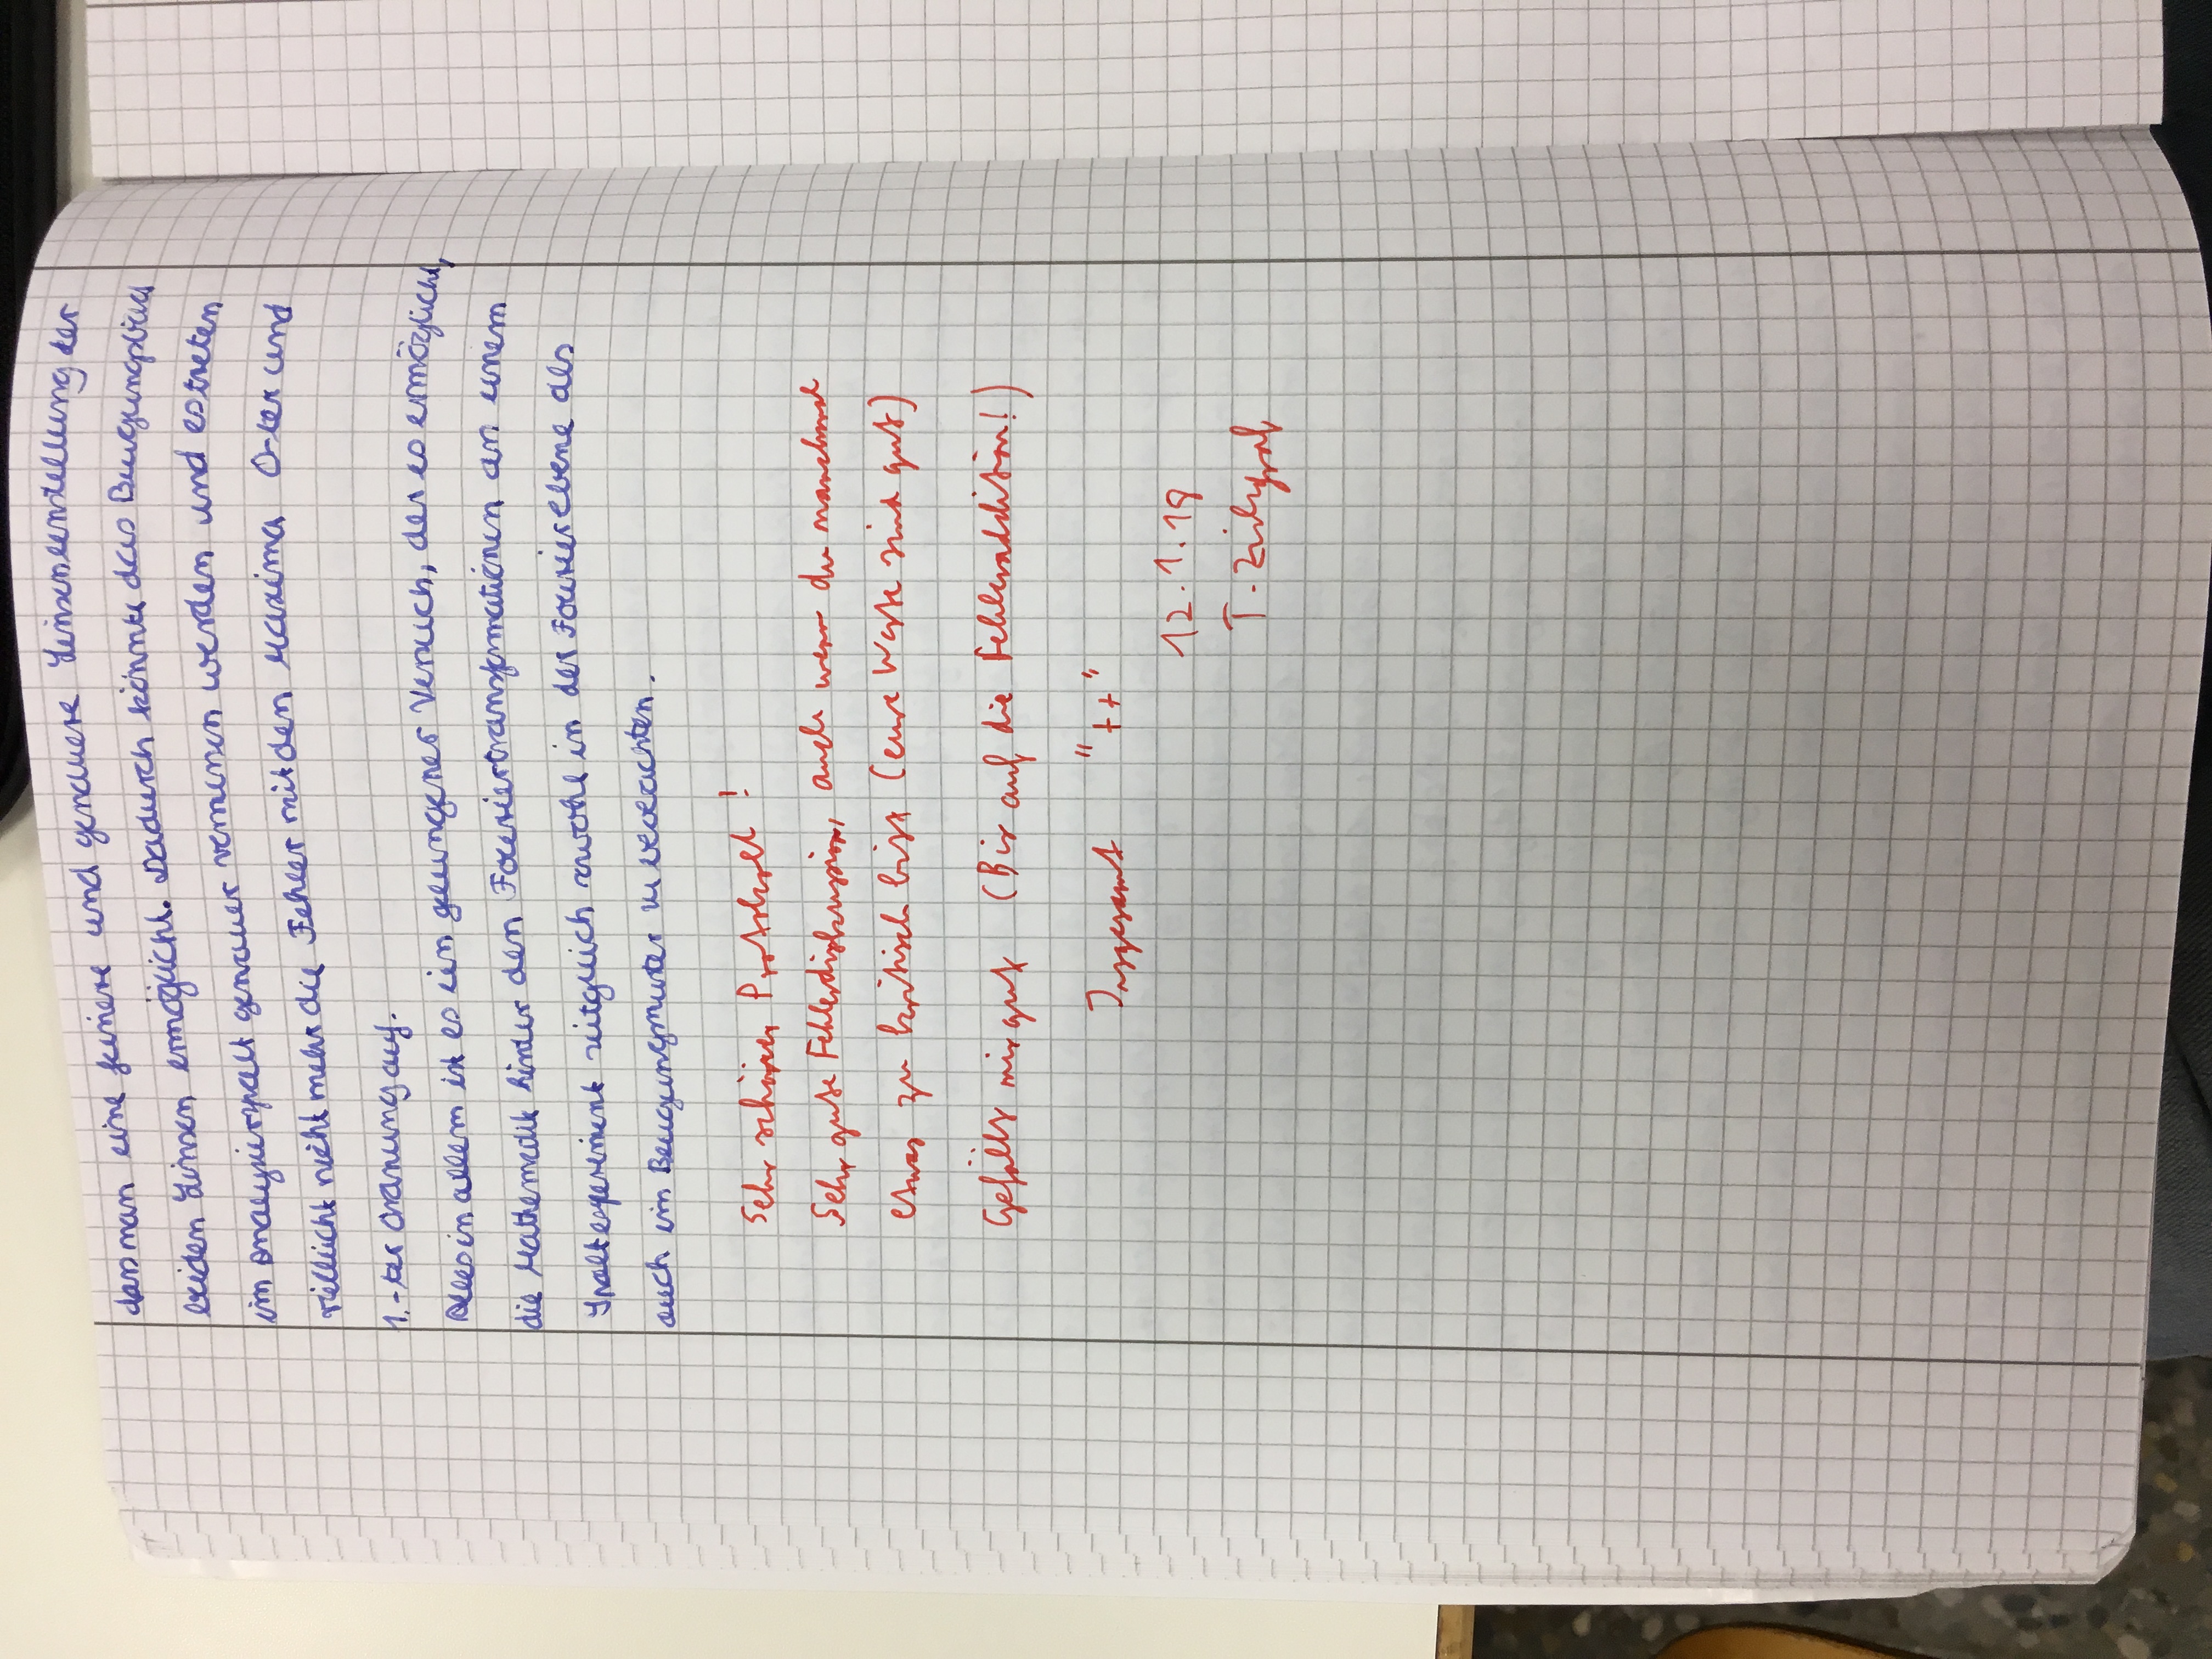 dass man eine feinere und genauere Linseneinstellung der
beiden Linsen ermöglicht. Dadurch könnte das Beugungsbild
im Analysierspalt genauer vermessen werden und es treten
vielleicht nicht mehr die Fehler mit den Maxima 0-ter und
1.-ter Ordnung auf.
Alles in allem ist es ein gelungener Versuch, der es ermöglicht,
die Mathematik hinter den Fouriertransformationen an einem
Spaltexperiment zeitgleich sowohl in der Fourierebene als
auch im Beugungsmuster zu beobachten.
Sehr schönes Protokoll!
Sehr gute Fehlerdiskussion, auch wenn du manchmal
etwas zu kritisch bist (eure Werte sind gut)
Gefällt mir gut (Bis auf die Fehleraddition!)
Insgesamt "++"
12.1.18
T.